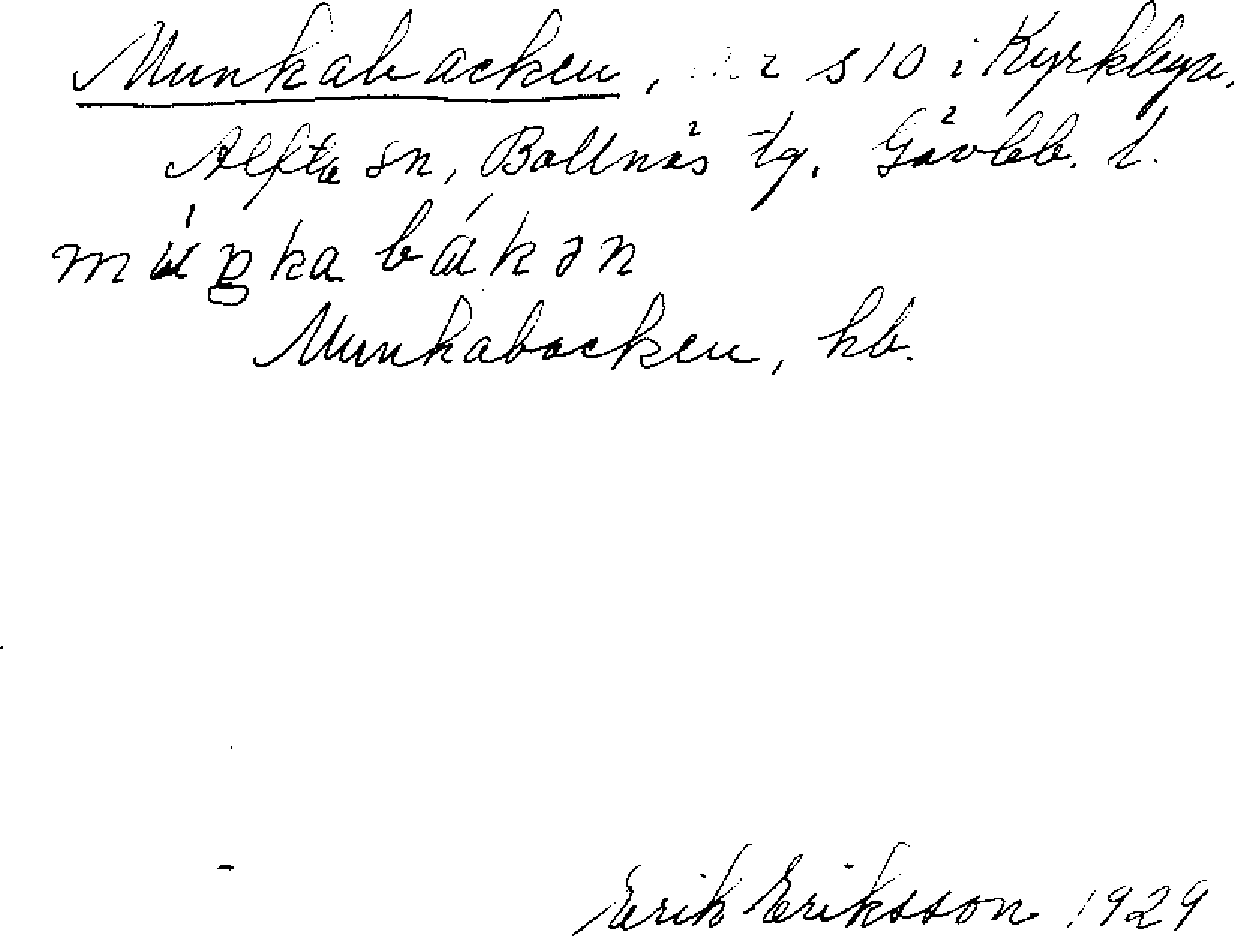 Munkabacken, s 10 i Kyrkbyn,
Alfta sn, Bollnäs tg. Gävleb. l.
múŋka bákən
Munkabacken, hb.
Erik Eriksson 1929